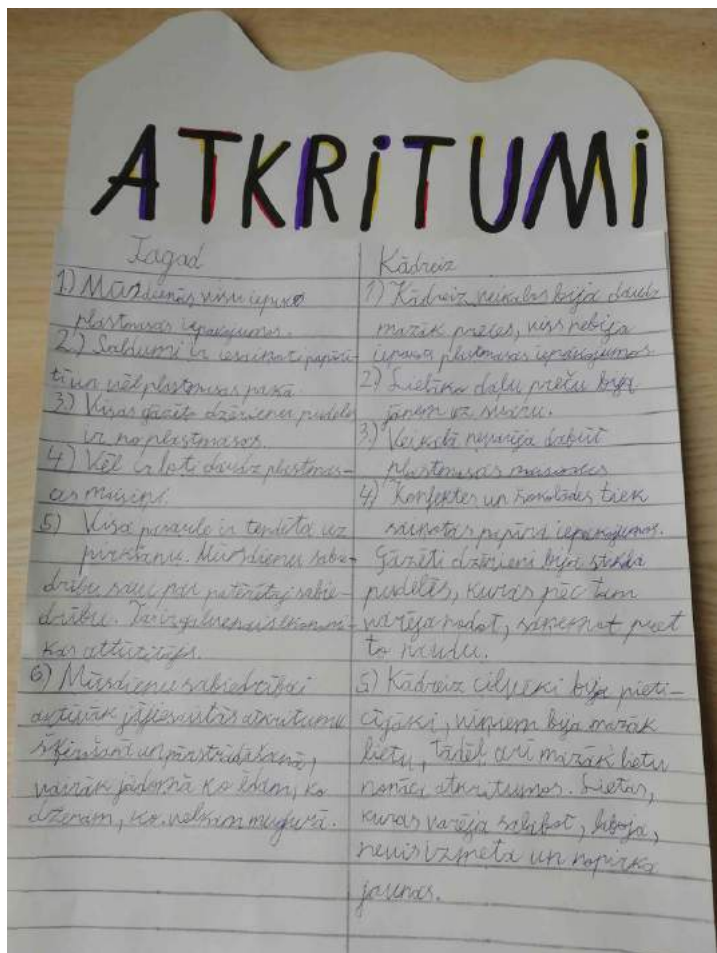 ATKRITUMI
Tagad
1.) Mūsdienās visu iepako
plastmasas iepakojumos.
2.) Saldumi ir iesaiņoti papīrī-
tī un vēl plastmasas pakā.
3.) Visas gāzēto dzērienu pudeles
ir no plastmasas.
4) Vēl ir ļoti daudz plastmas-
as maisiņi.
5) Visa pasaule ir tendēta uz
pirkšanu. Mūsdienu sabie-
drību sauc par patērētāj sabie-
drību. Tas ir galvenais ekonomi-
kas attīstītājs.
6) Mūsdienu sabiedrībai
aktīvāk jāiesaistās atkritumu
šķirošanā un pārstrādāšanā,
vairāk jādomā ko ēdam, ko
dzeram, ko velkam mugurā.
Kādreiz
1) Kādreiz veikalos bija daudz
mazāk preces, viss nebija
iepakots plastmasas iepakojumos.
2) Lielāko daļu preču bija
jāņem uz svaru.
3) Veikalā nevarēja dabūt
plastmasas maisiņus
4) Konfektes un šokolādes tiek
saiņotas papīra iepakojumos.
Gāzēti dzērieni bija stikla
pudelēs, kuras pēc tam
varēja nodot, saņemot pret
to naudu.
5) Kādreiz cilvēki bija pieti-
cīgāki, viņiem bija mazāk
lietu, tādēļ arī mazāk lietu
nonāca atkritumos. Lietas,
kuras varēja salabot, laboja,
nevis izmeta un nopirka
jaunas.